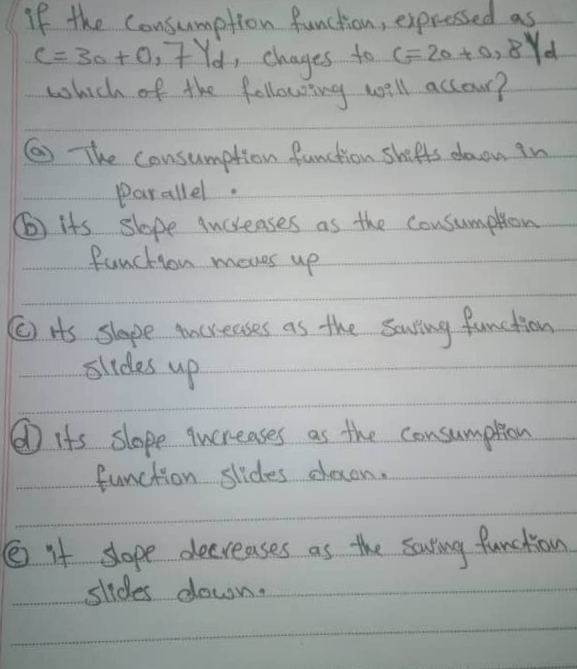 if the consumption function, expressed as
C=30+0,7Yd, chages to C=20+0,8Yd
which of the following will accour?
(a) The consumption function shifts down in
parallel.
(b) its slope increases as the consumption
function moves up
(c) its slope increeses as the Saving function
slides up
(d) its slope increases as the consumption
function slides down.
(e) it slope decreeses as the saving function
slides down.